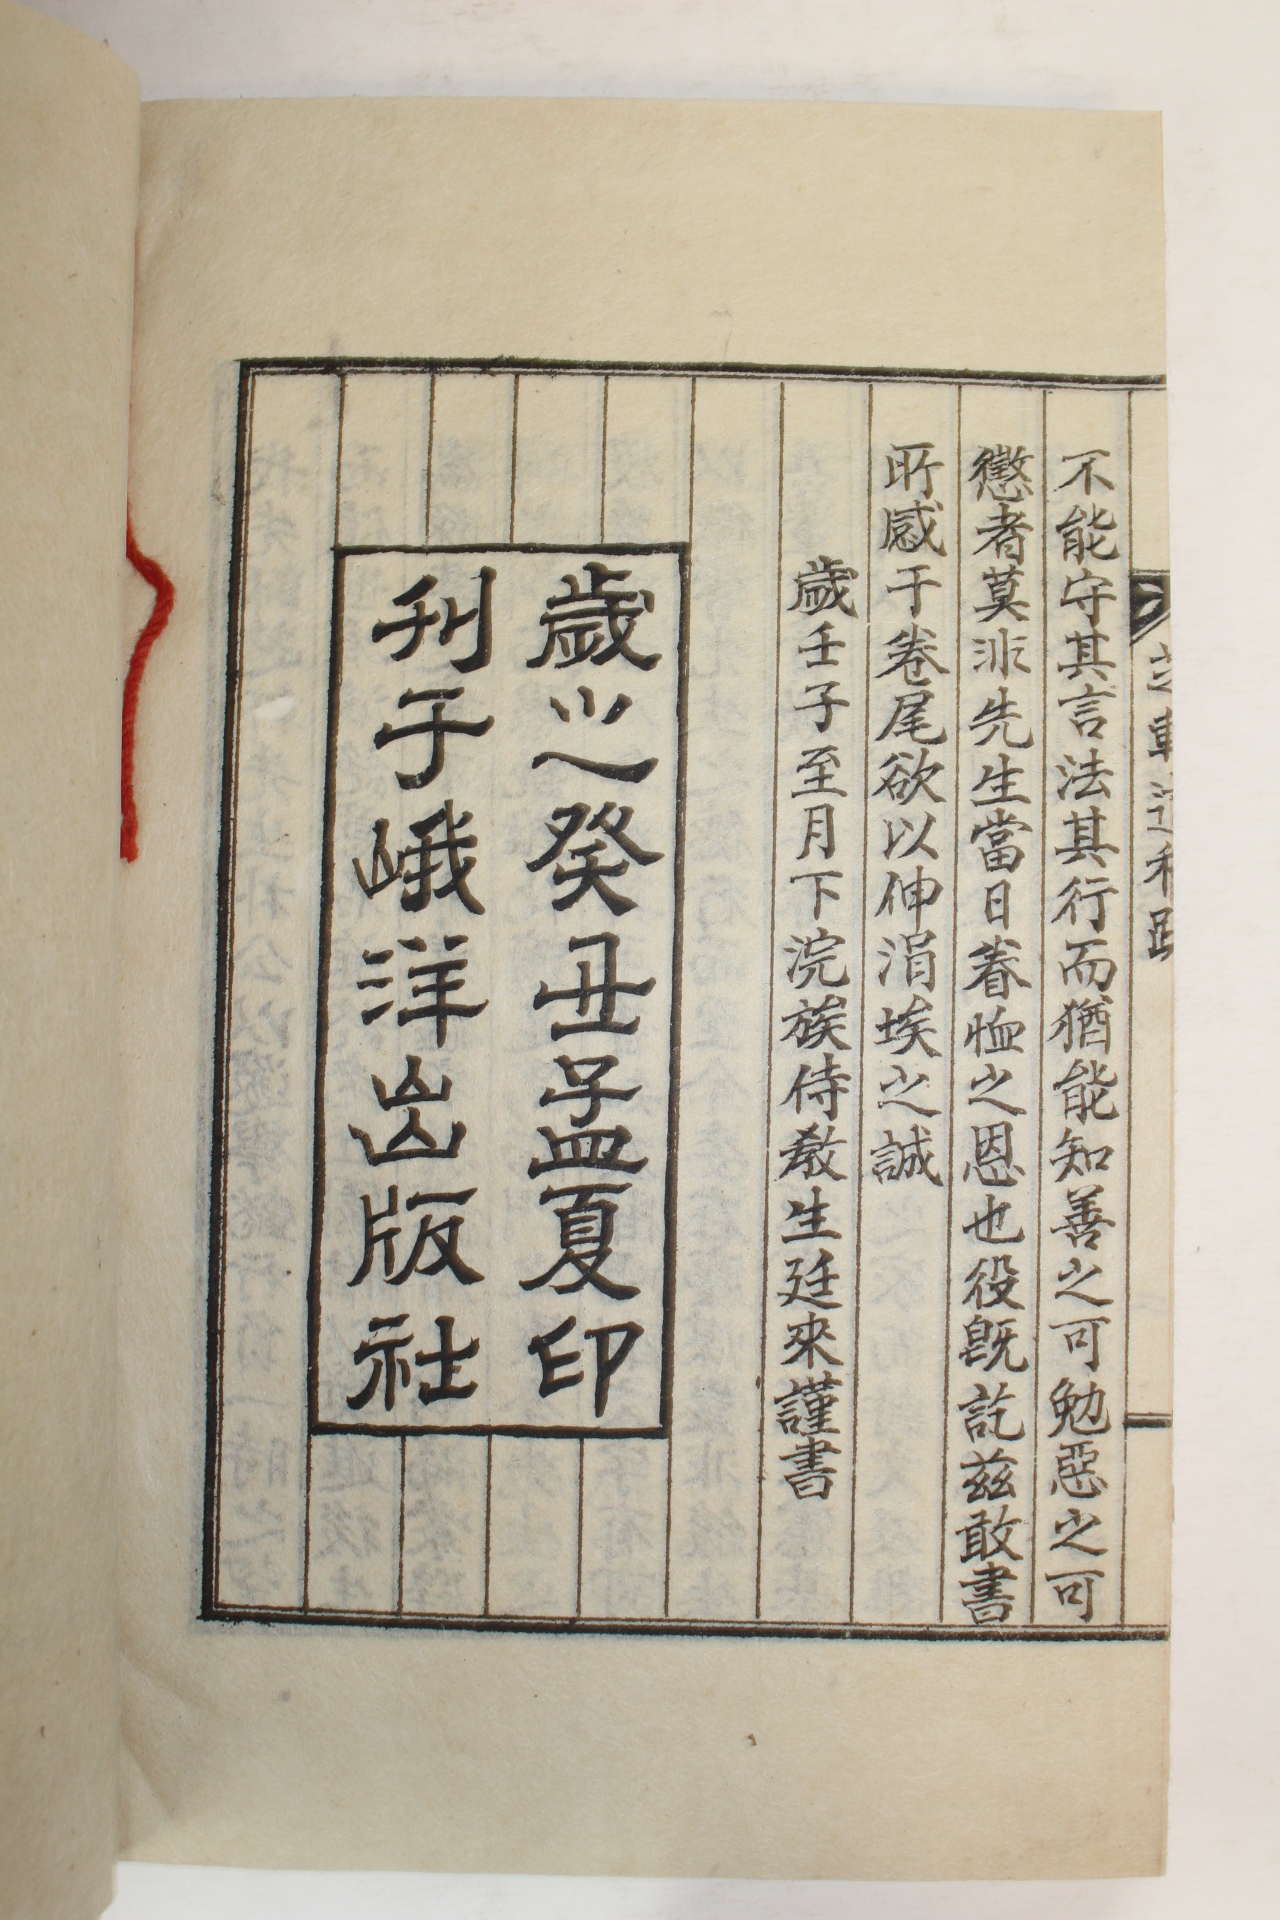 不能守其言法其行而猶能知善之可勉惡之可
懲者莫非先生當日眷恤之恩也役旣訖玆敢書
所感于卷尾欲以伸涓埃之誠
歲壬子至月下浣族侍敎生廷來謹書
歲之癸丑孟夏印
刊于峨洋山版社